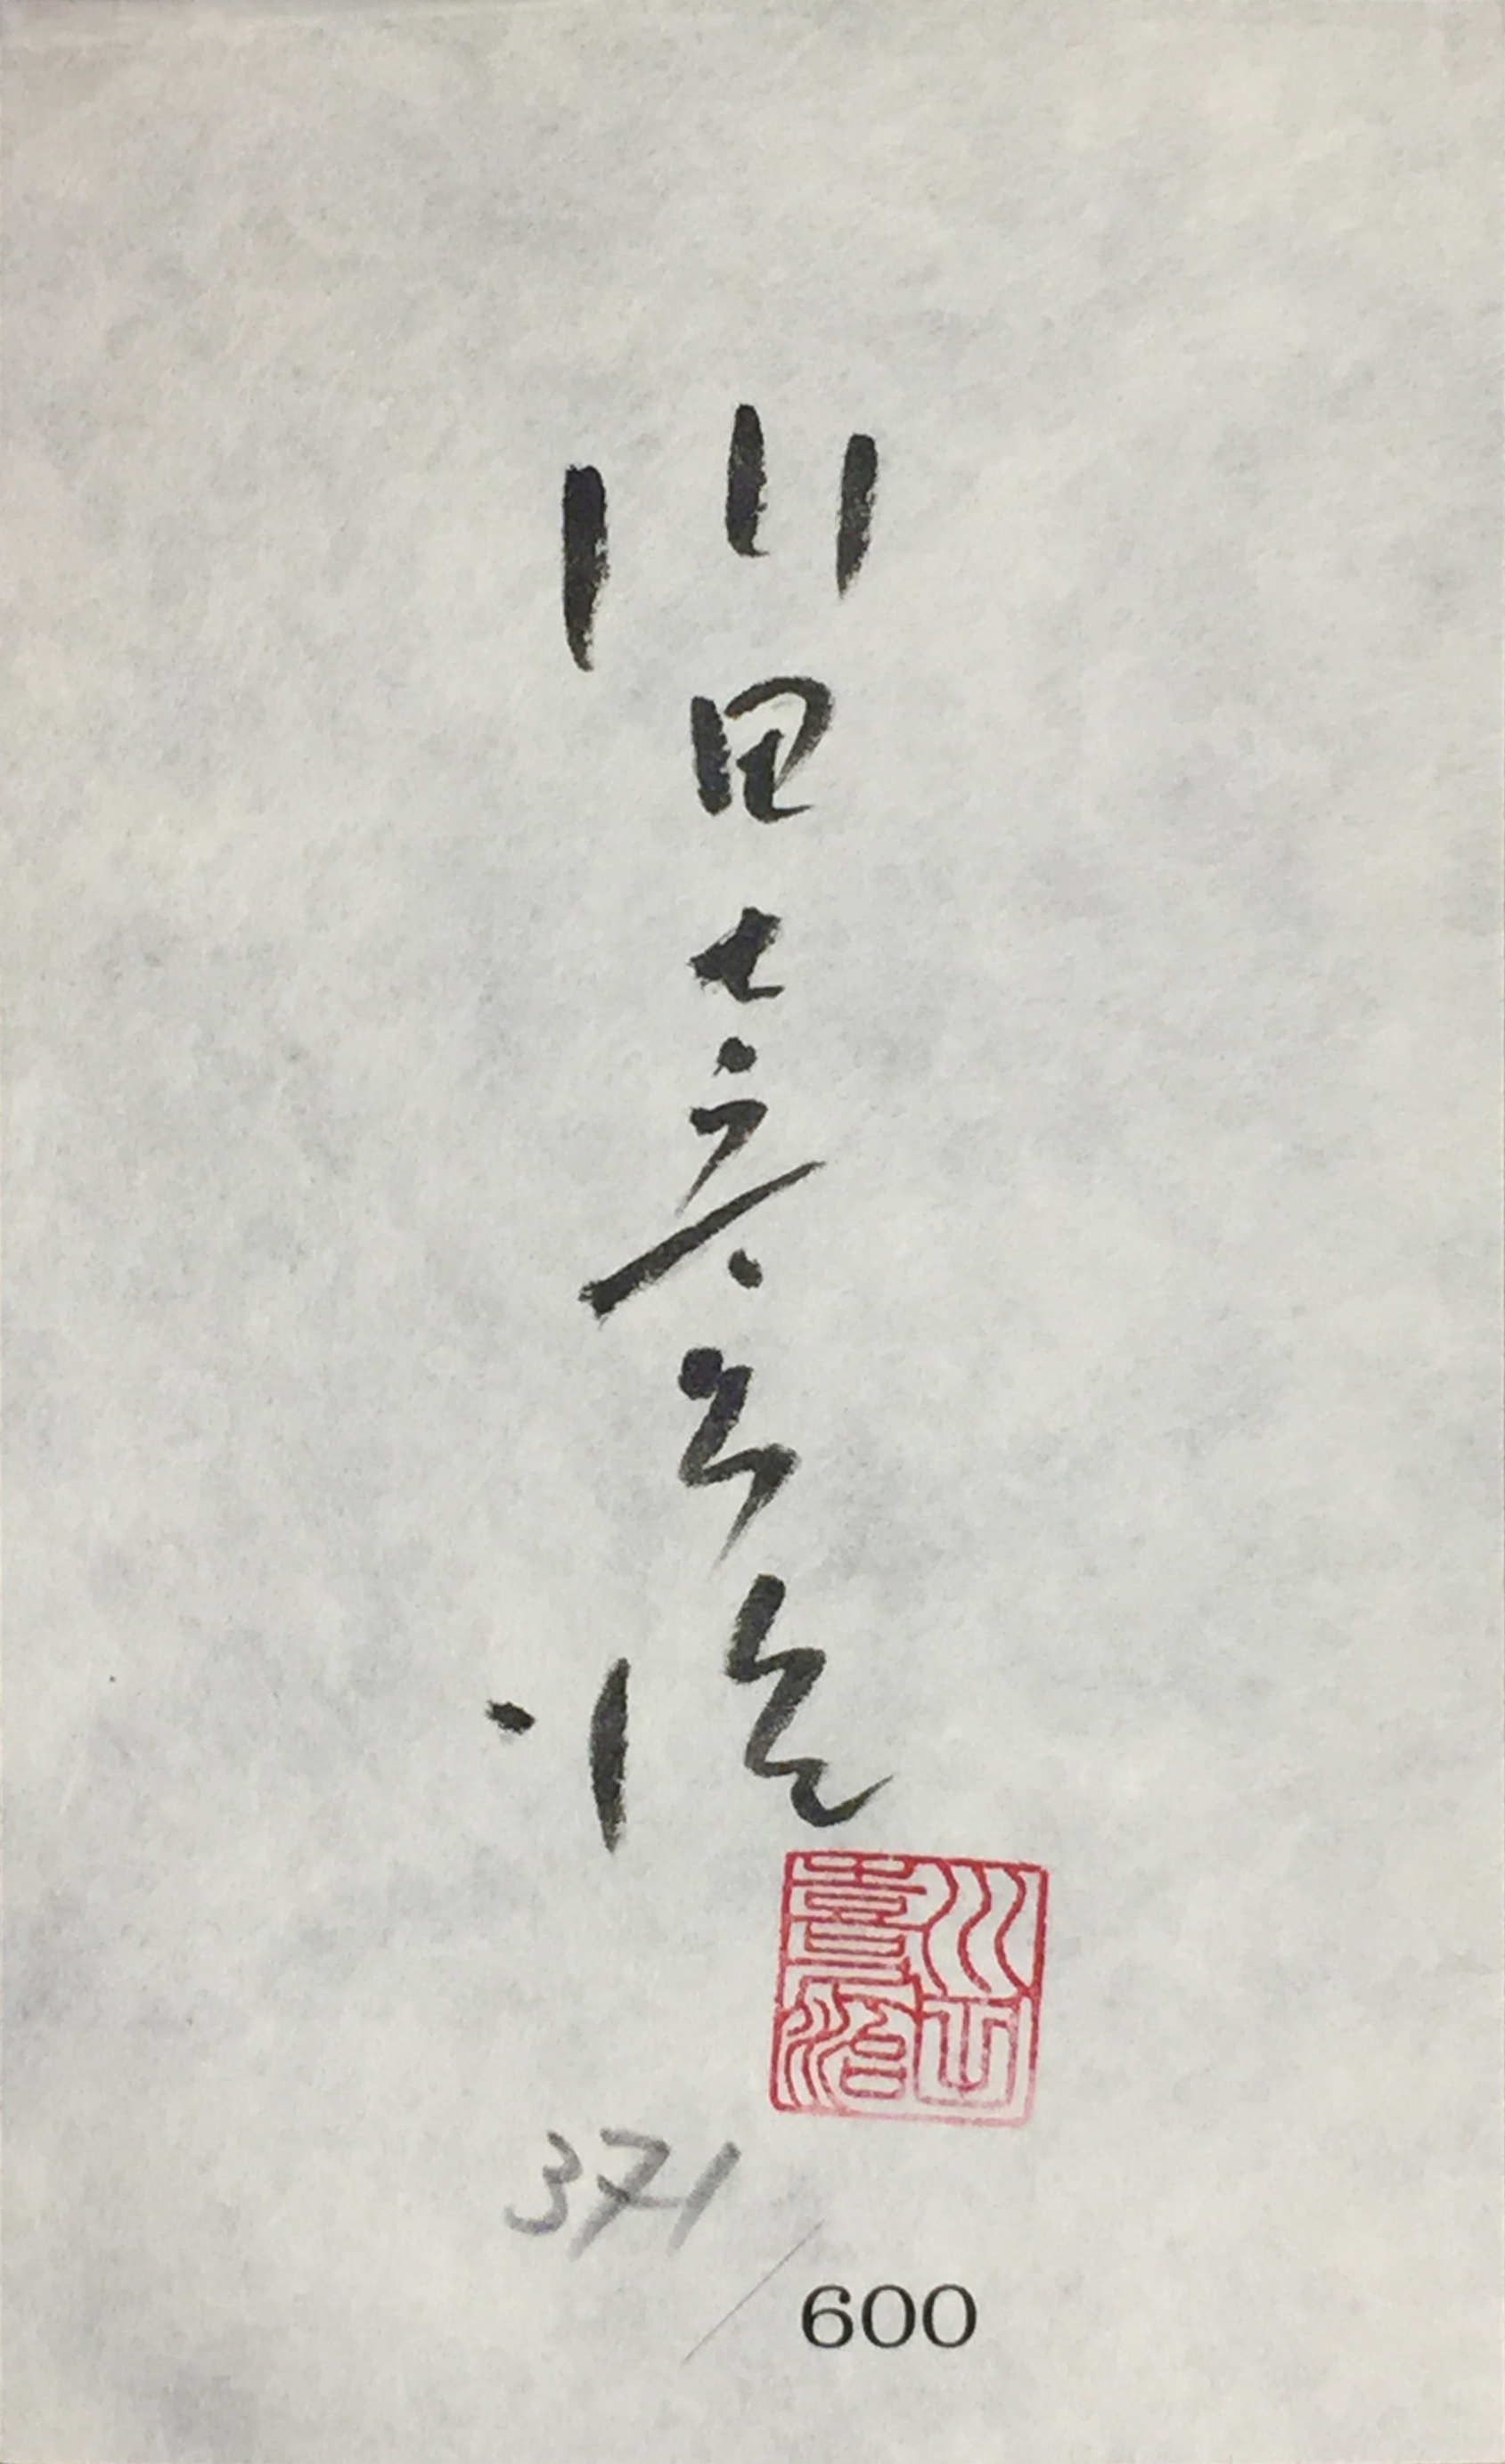 川田喜久治
371/600